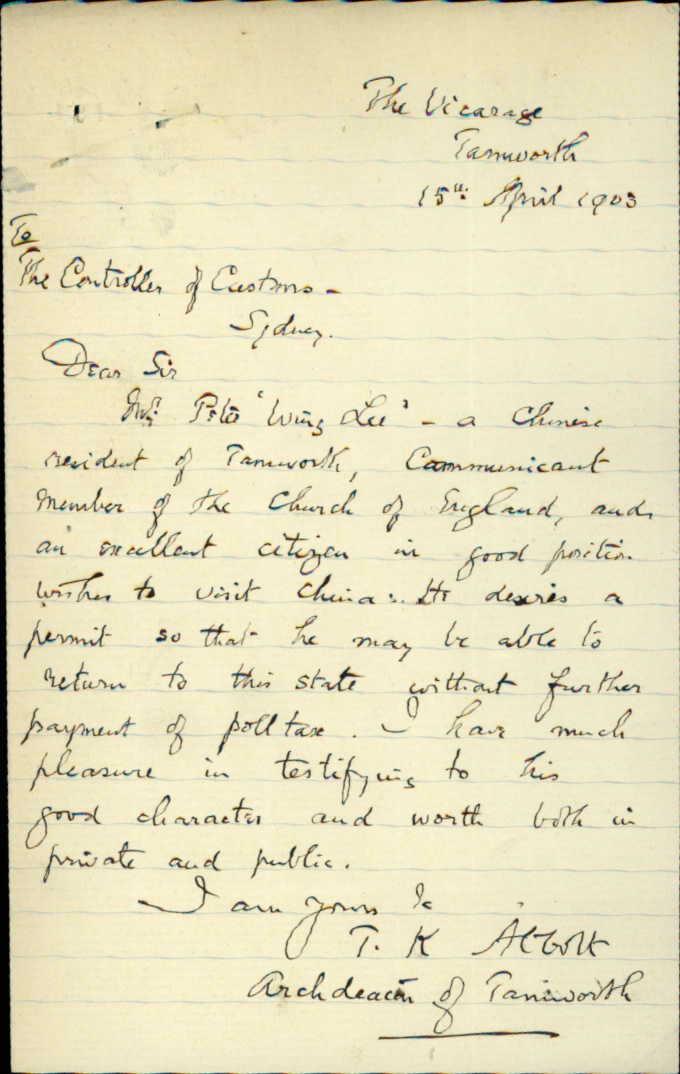 The Vicarage
Tamworth
15th April 1903
To
The Controller of Customs -
Sydney.
Dear Sir
Mr. Peter 'Wing Lee' - a Chinese
resident of Tamworth, Communicant
Member of the Church of England, and
an excellent citizen in good position
wishes to visit China. He desires a
permit so that he may be able to
return to this state without further
payment of poll tax. I have much
pleasure in testifying to his
good character and worth both in
private and public.
I am yours &c
T. K Abbott
Archdeacon of Tamworth